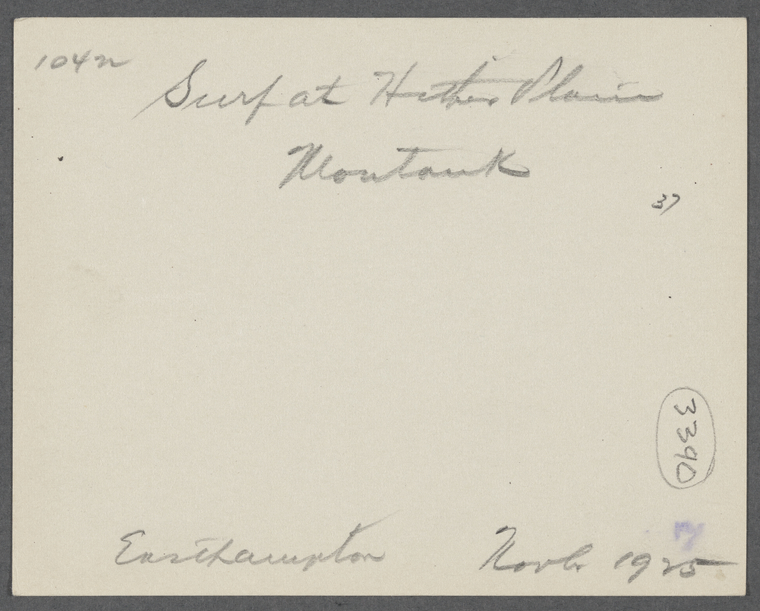 104n
Surf at Hither Plain
Montauk
37
3390
Easthampton Novbr 1925